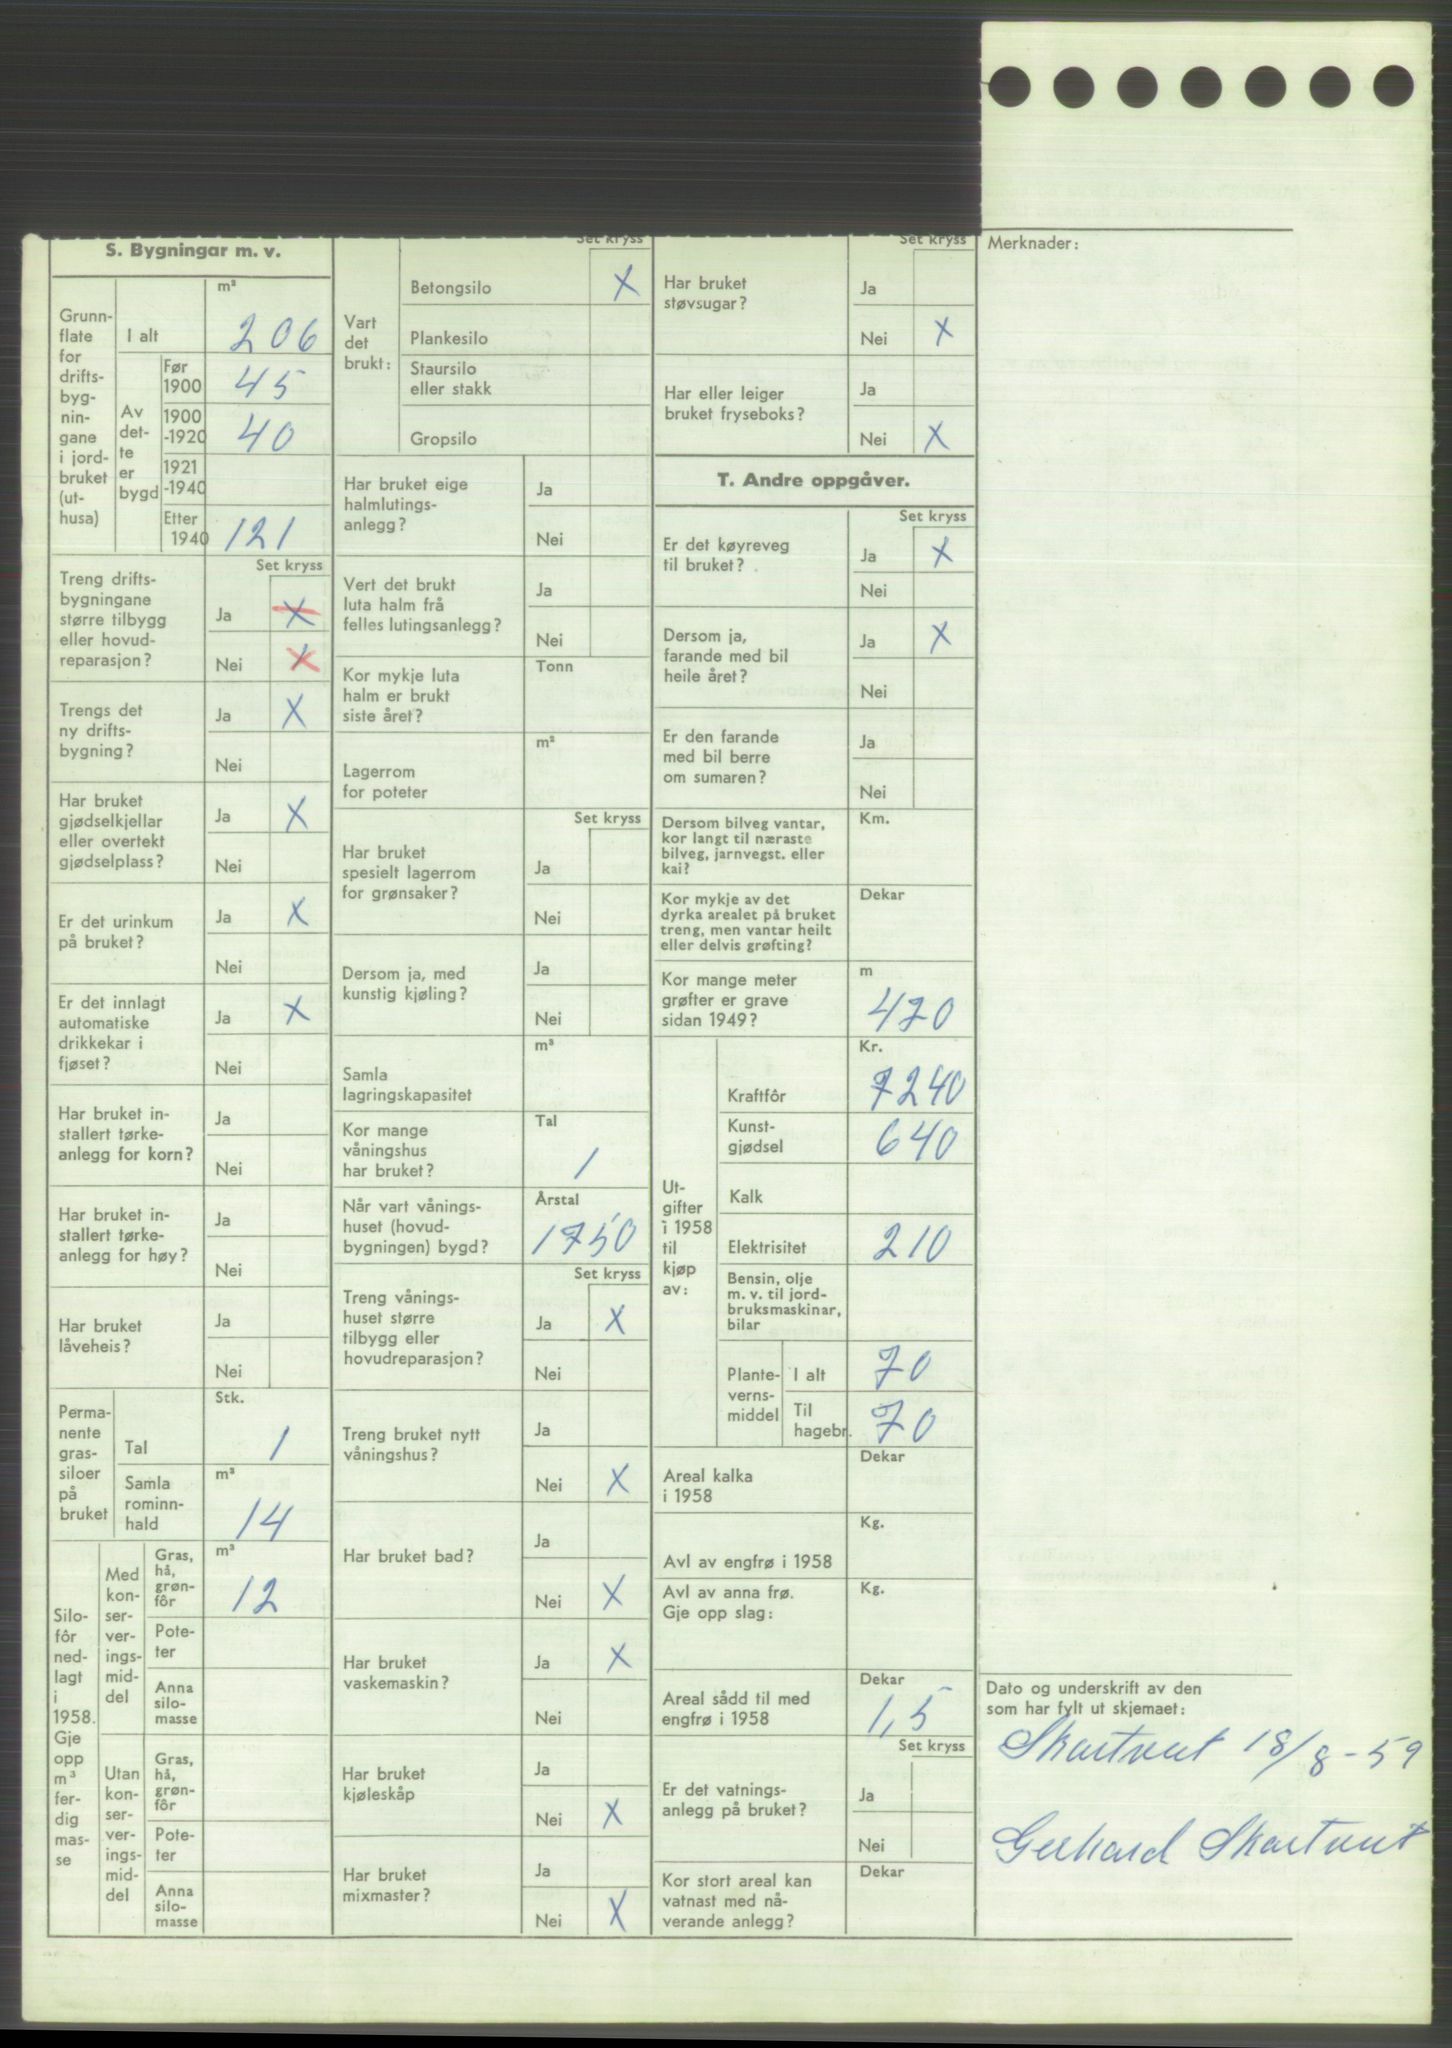 S. Bygningar m. v.
Grunn-
flate
for
drifts-
byg-
nin-
gane
i jord-
bruket
(ut-
husa)
m²
I alt 206
Av
det-
te
er
bygd
Før
1900 45
1900
-1920 40
1921
-1940
Etter
1940 121
Set kryss
Treng drifts-
bygningane
større tilbygg
eller hovud-
reparasjon?
Ja X
Nei X
Trengs det
ny drifts-
bygning?
Ja X
Nei
Har bruket
gjødselkjellar
eller overtekt
gjødselplass?
Ja X
Nei
Er det urinkum
på bruket?
Ja X
Nei
Er det innlagt
automatiske
drikkekar i
fjøset?
Ja X
Nei
Har bruket in-
stallert tørke-
anlegg for korn?
Ja
Nei
Har bruket in-
stallert tørke-
anlegg for høy?
Ja
Nei
Har bruket
låveheis?
Ja
Nei
Perma-
nente
gras-
siloer
på
bruket
Stk.
Tal 1
m³
Samla
rominn-
hald 14
Silo-
fôr
ned-
lagt
i
1958.
Gje
opp
m³
fer-
dig
mas-
se
Med
kon-
ser-
ver-
ings-
mid-
del
m³
Gras,
hå,
grøn-
fôr 12
Pote-
ter
Anna
silo-
masse
Utan
kon-
ser-
ver-
ings-
mid-
del
Gras,
hå,
grøn-
fôr
Pote-
ter
Anna
silo-
masse
Set kryss
Vart
det
brukt:
Betongsilo X
Plankesilo
Staursilo
eller stakk
Gropsilo
Har bruket eige
halmlutings-
anlegg?
Ja
Nei
Vert det brukt
luta halm frå
felles lutingsanlegg?
Ja
Nei
Kor mykje luta
halm er brukt
siste året?
Tonn
Lagerrom
for poteter
m²
Set kryss
Har bruket
spesielt lagerrom
for grønsaker?
Ja
Nei
Dersom ja, med
kunstig kjøling?
Ja
Nei
Samla
lagringskapasitet
m³
Kor mange
våningshus
har bruket?
Tal
1
Når vart vånings-
huset (hovud-
bygningen) bygd?
Årstal
1750
Set kryss
Treng vånings-
huset større
tilbygg eller
hovudreparasjon?
Ja X
Nei
Treng bruket nytt
våningshus?
Ja
Nei X
Har bruket bad?
Ja
Nei X
Har bruket
vaskemaskin?
Ja X
Nei
Har bruket
kjøleskåp
Ja
Nei X
Har bruket
mixmaster?
Ja
Nei X
Set kryss
Har bruket
støvsugar?
Ja
Nei X
Har eller leiger
bruket fryseboks?
Ja
Nei X
T. Andre oppgåver.
Set kryss
Er det køyreveg
til bruket?
Ja X
Nei
Dersom ja,
farande med bil
heile året?
Ja X
Nei
Er den farande
med bil berre
om sumaren?
Ja
Nei
Dersom bilveg vantar,
kor langt til næraste
bilveg, jarnvegst. eller
kai?
Km.
Kor mykje av det
dyrka arealet på bruket
treng, men vantar heilt
eller delvis grøfting?
Dekar
Kor mange meter
grøfter er grave
sidan 1949?
m
470
Ut-
gifter
i 1958
til
kjøp
av:
Kr.
Kraftfôr 7240
Kunst-
gjødsel 640
Kalk
Elektrisitet 210
Bensin, olje
m. v. til jord-
bruksmaskinar,
bilar
Plante-
verns-
middel
I alt 70
Til
hagebr. 70
Areal kalka
i 1958
Dekar
Avl av engfrø i 1958
Kg.
Avl av anna frø.
Gje opp slag:
Kg.
Areal sådd til med
engfrø i 1958
Dekar
1,5
Set kryss
Er det vatnings-
anlegg på bruket?
Ja
Nei
Kor stort areal kan
vatnast med nå-
verande anlegg?
Dekar
Merknader:
Dato og underskrift av den
som har fylt ut skjemaet:
Skartveit 18/8-59
Gerhard Skartveit